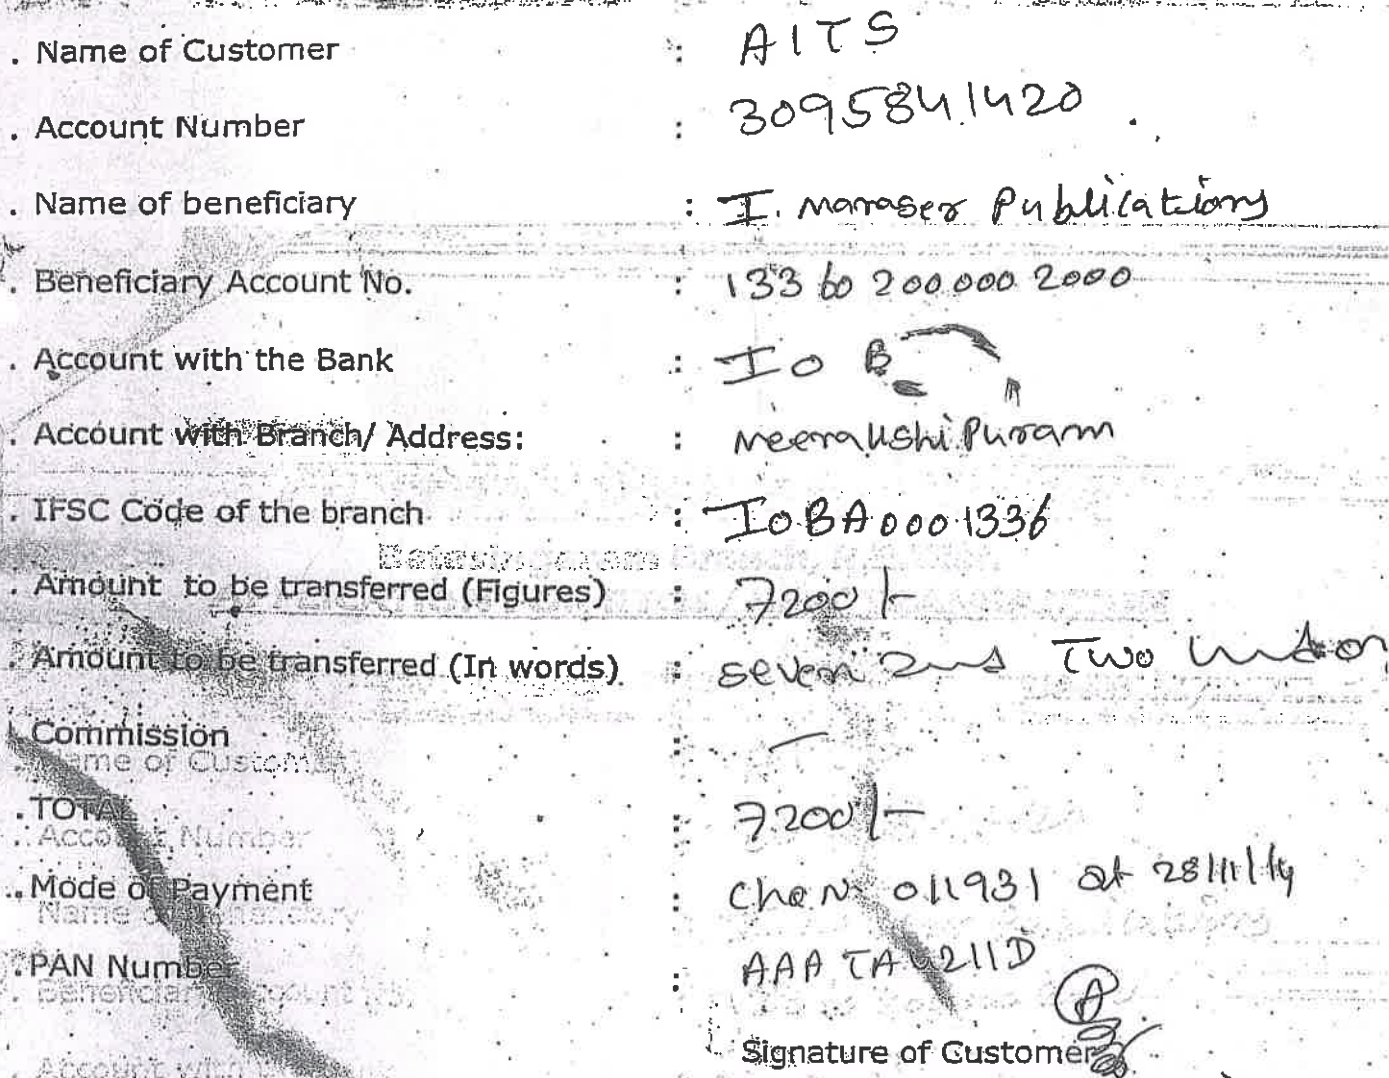 . Name of Customer : AITS
. Account Number : 30958411420 .
. Name of beneficiary : I. Manager Publications
. Beneficiary Account No. : 133 60 200 000 2000
. Account with the Bank : IOB
. Account with Branch/ Address: : MeenakshiPuram
. IFSC Code of the branch : IOBA0001336
. Amount to be transferred (Figures) : 7200/-
. Amount to be transferred (In words) : Seven Two
. Commission : —
. TOTAL : 7200/-
Name of Customer
.. Mode of Payment : 011931 28/11/14
Account Number
. PAN Number : AAATA4211D
Signature of Customer